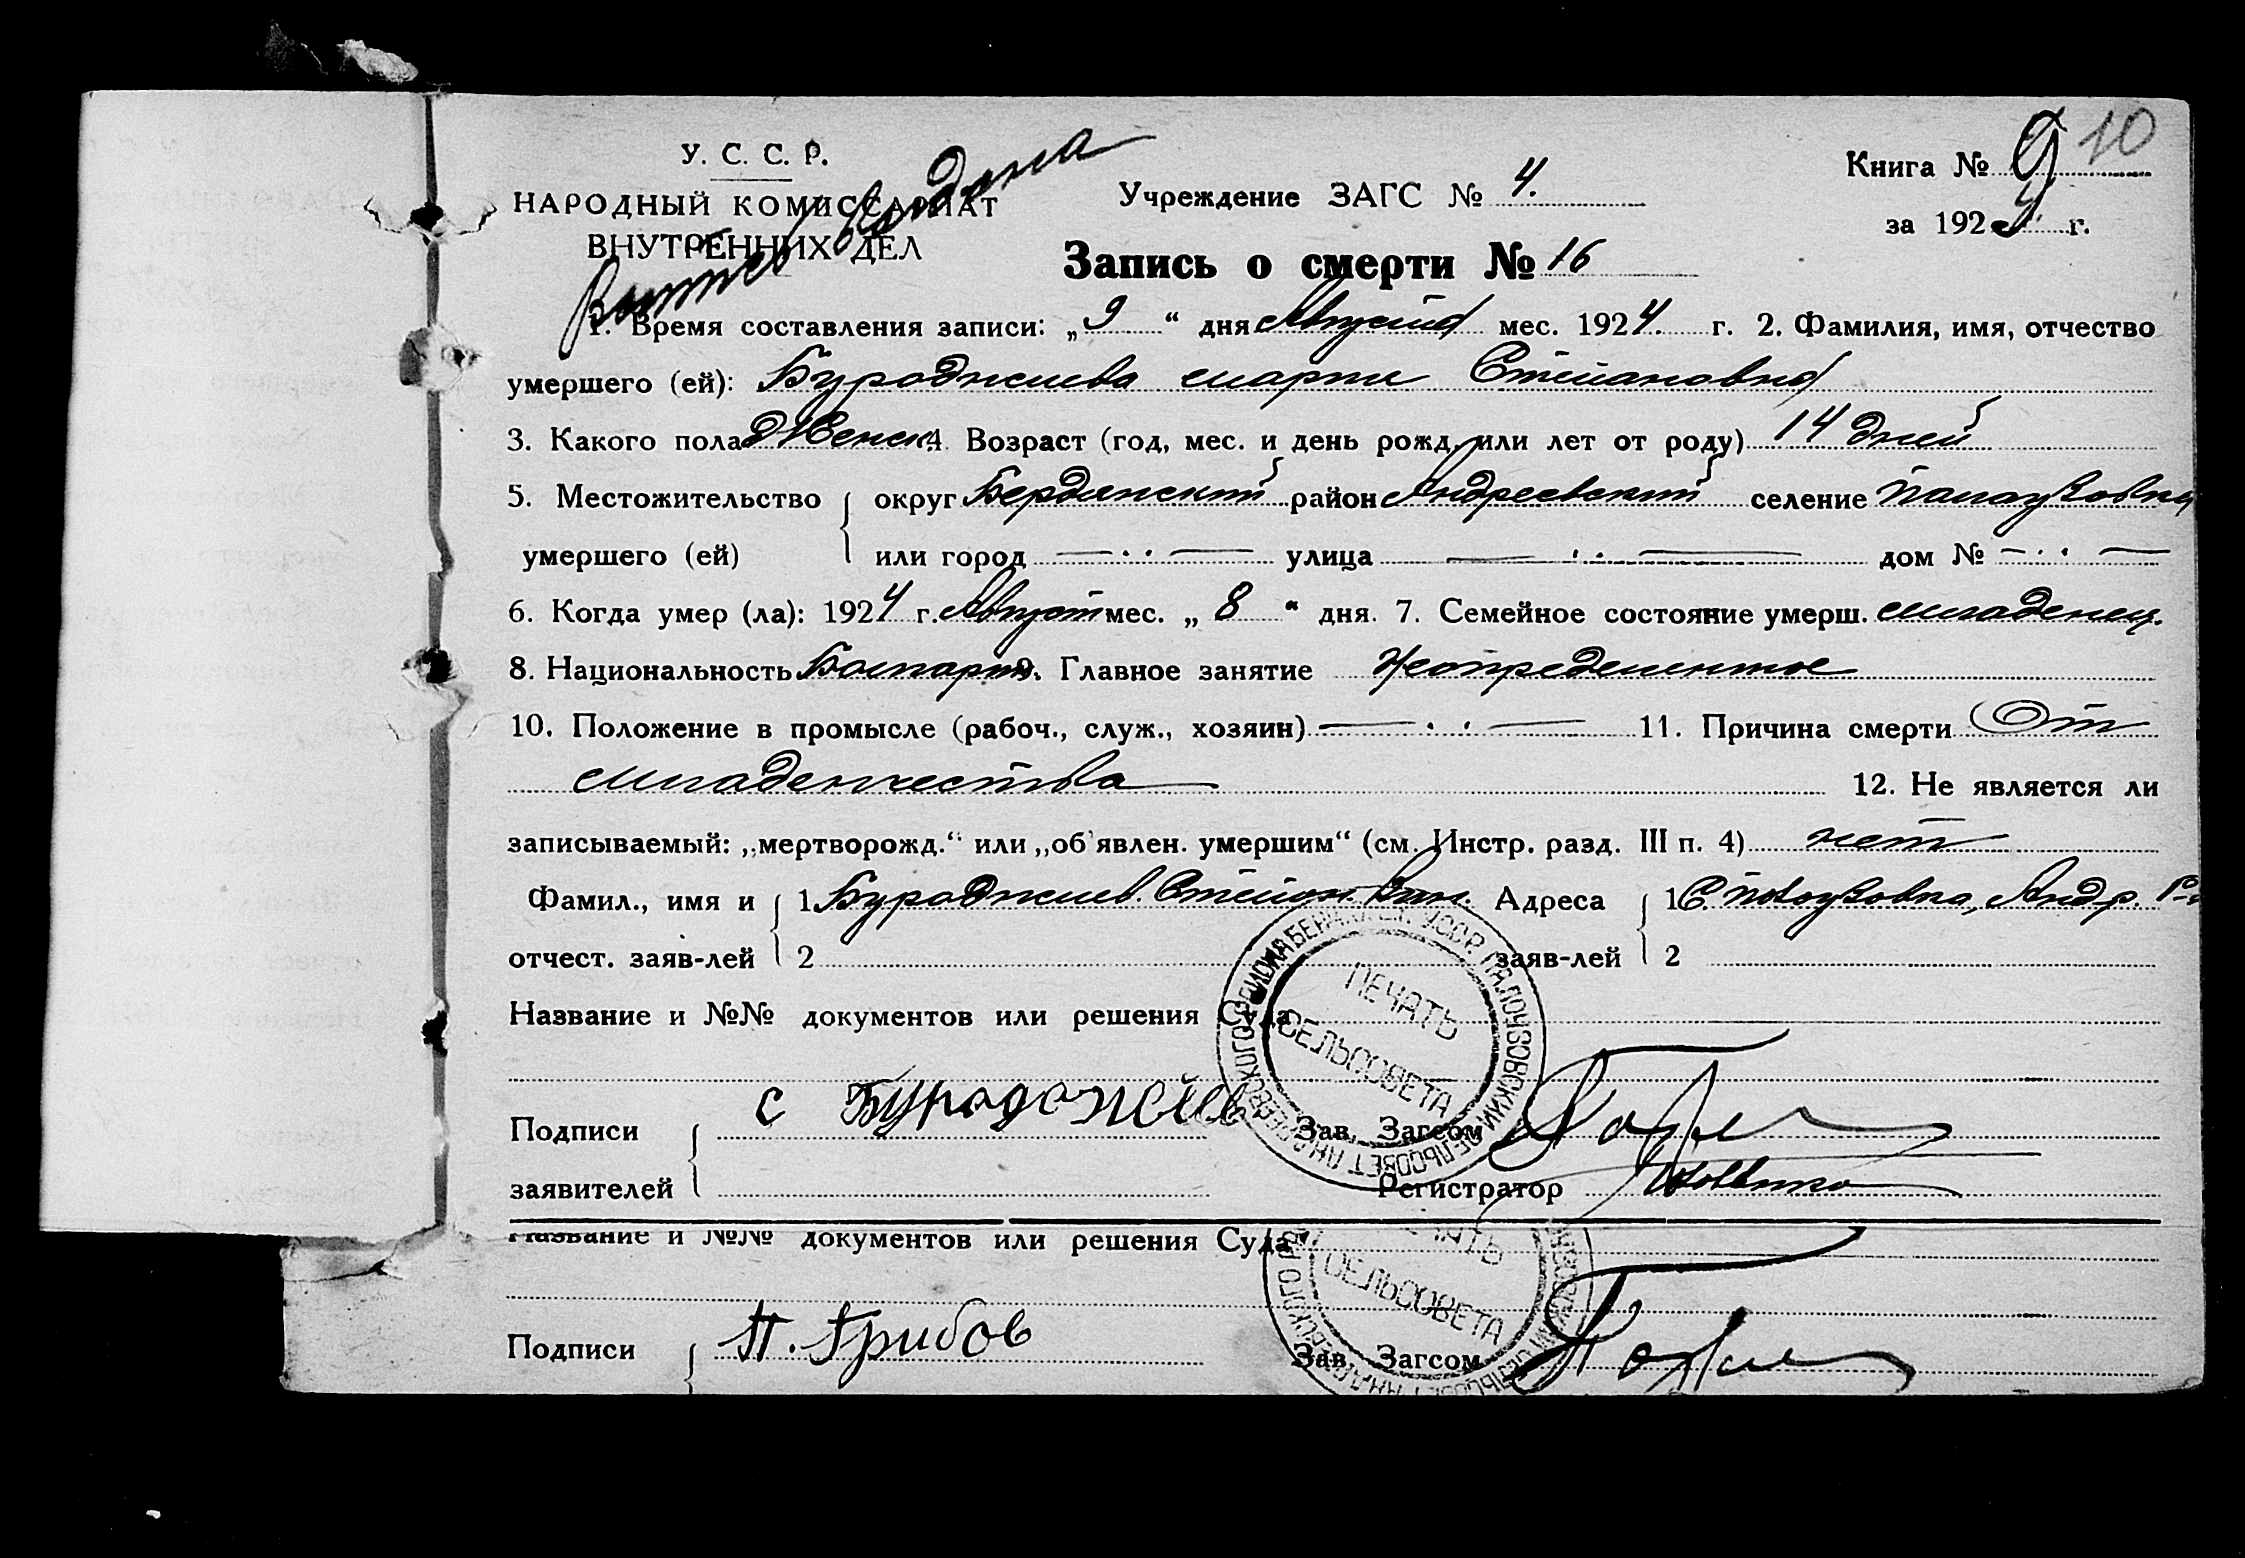 У. С. С. Р.
НАРОДНЫЙ КОМИССАРИАТ
ВНУТРЕННИХ ДЕЛ
Учреждение ЗАГС № 4.
Книга № 9 10
за 1924 г.
Запись о смерти № 16
1. Время составления записи: „ 9 “ дня Августа мес. 1924. г. 2. Фамилия, имя, отчество
умершего (ей): Бураджиева Марта Степановна
3. Какого пола Женск. 4. Возраст (год, мес. и день рожд. или лет от роду) 14 дней
5. Местожительство округ Бердянский район Андреевский селение Палаузовка
умершего (ей) или город — · · — улица — · · — дом № — · · —
6. Когда умер (ла): 1924 г. Август мес. „ 8 “ дня. 7. Семейное состояние умерш. младенец.
8. Национальность Болгарин 9. Главное занятие Неопределенное
10. Положение в промысле (рабоч., служ., хозяин) — · · — 11. Причина смерти От
младенчества 12. Не является ли
записываемый: „мертворожд.“ или „об'явлен. умершим“ (см. Инстр. разд. III п. 4) нет
Фамил., имя и 1 Бураджиев. Степан. Адреса 1 С. Палаузовка, Андр. Р-на
отчест. заяв-лей 2 заяв-лей 2
Название и №№ документов или решения Суда
ПЕЧАТЬ
СЕЛЬСОВЕТА
Подписи с Бурадожиев Зав. Загсом
заявителей Регистратор
Название и №№ документов или решения Суда
ПЕЧАТЬ
СЕЛЬСОВЕТА
Подписи П. Грибов Зав. Загсом